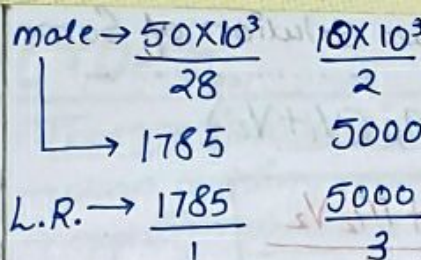 mole → 50×10³/28 10×10³/2
→ 1785 5000
L.R. → 1785/1 5000/3